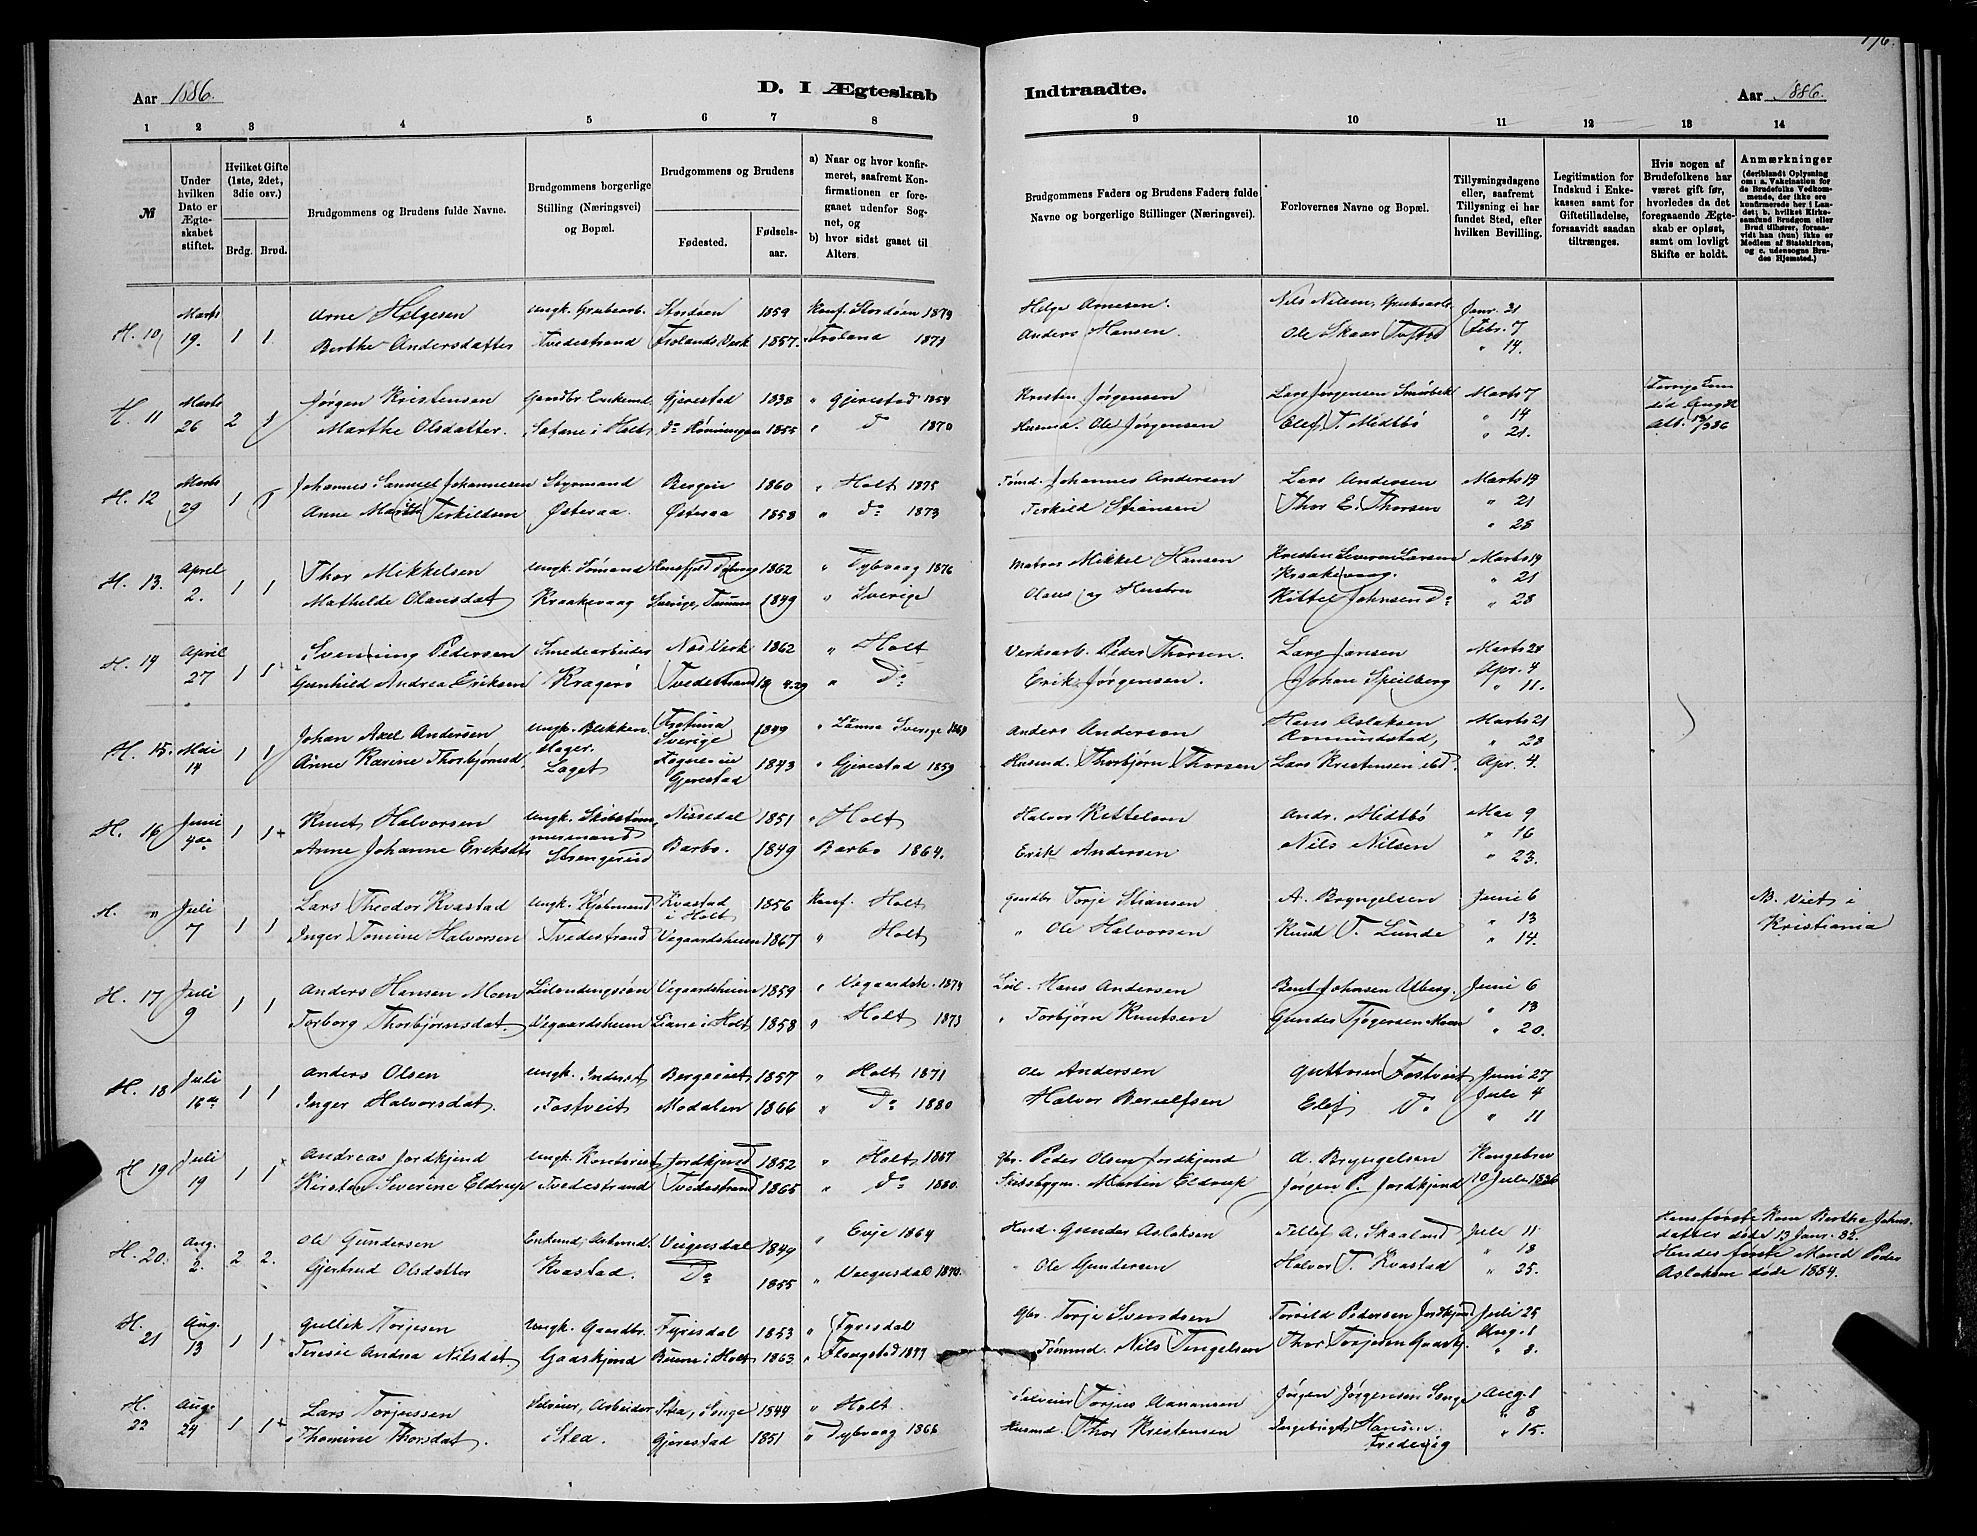 176.
Aar 1886.
D. I Ægteskab Indtraadte.
Aar 1886.
1 2 3 4 5 6 7 8 9 10 11 12 13 14
№
Under hvilken Dato er Ægteskabet stiftet.
Hvilket Gifte (1ste, 2det, 3die osv.)
Brdg. Brud.
Brudgommens og Brudens fulde Navne.
Brudgommens borgerlige Stilling (Næringsvei) og Bopæl.
Brudgommens og Brudens
Fødested. Fødselsaar.
a) Naar og hvor konfirmeret, saafremt Konfirmationen er foregaaet udenfor Sognet, og
b) hvor sidst gaaet til Alters.
Brudgommens Faders og Brudens Faders fulde Navne og borgerlige Stillinger (Næringsvei).
Forlovernes Navne og Bopæl.
Tillysningsdagene eller, saafremt Tillysning ei har fundet Sted, efter hvilken Bevilling.
Legitimation for Indskud i Enkekassen samt for Giftetilladelse, forsaavidt saadan tiltrænges.
Hvis nogen af Brudefolkene har været gift før, hvorledes da det foregaaende Ægteskab er opløst, samt om lovligt Skifte er holdt.
Anmærkninger (deriblandt Oplysning om: a. Vakcination for de Brudefolks Vedkommende, der ikke ere konfirmerede her i Landet; b. hvilket Kirkesamfund Brudgom eller Brud tilhører, forsaavidt han (hun) ikke er Medlem af Statskirken, og c. udensogns Brudes Hjemsted.)
H. 10, Marts 19. 1 1 Arne Helgesen Ungk. Grubearb. Stordøen 1859 Konf. Stordøen 1873 Helge Arnesen. Nils Nilsen, Grubearb. Janr. 31
Berthe Andersdatter Tvedestrand Frolands Verk 1857. Froland 1871 Anders Hansen. Ole Skaar Febr. 7
" 14.
H. 11 Marts 26 2 1 Jørgen Kristensen Gaardbr. Enkemd. Gjerestad 1838 " Gjerestad 1854 Kristen Jørgensen Lars Jørgensen Marts 7
Marthe Olsdatter. i Holt do 1855 " do 1870 Husmd. Ole Jørgensen Elef T. Midtbø " 14
" 21.
H. 12 Marts 29 1 1 Johannes Samuel Johannesen Styrmand Bergen 1860 " Holt 1875 Tømd. Johannes Andersen Lars Andersen Marts 14
Anne Terkildsen Østeraa. Østeraa 1858 " do 1873 Terkild Stiansen Thor E. Thorsen " 21
" 28
H. 13. April 2. 1 1 Thor Mikkelsen Ungk. Sømand 1862 " Dybvaag 1876 Matros Mikkel Hansen Kristen Severin Larsen Marts 14
Kraakevaag. " 21
Mathilde Olausdat Kraakevaag Sverige, 1849 " Sverige Olaus Kittel Johnsen do " 28
H. 14 April 27 1 1 Svenning Pedersen Smedearbeider Næs Verk 1862 " Holt Verksarb. Peder Thorsen. Lars Jansen Marts 28
Gunhild Andrea Eriksen Kragerø Tvedestrand " do Erik Jørgensen. Johan Speilberg Apr. 4
" 11.
H. 15. Mai 14 1 1 Johan Axel Andersen Ungk. Blikkenslager. Sverige 1849 " Sverige Anders Anderson Hans Aslaksen Romundstad, Marts 21
" 28
Anne Karine Thorbjørnsd. Laget Gjerestad 1843 " Gjerestad 1859 Husmd. Thorbjørn Thorsen Lars Kristensen ibd. Apr. 4.
H. 16 Juni 1 1 Knut Halvorsen Ungk. Skibstømmermand Nissedal 1851 " Holt Halvor Kittelsen Andr. Midtbø Mai 9
" 16
Anne Johanne Eriksdt Strengereid Barbo. 1849 Barbo 1864. Erik Andersen Nils Nilsen " 23.
H. " Juli 7 1 1 Lars Theodor Kvastad Ungk. Kjøbmand Kvastad i Holt 1856 Konf. Holt Gaardbr Torje Stiansen A. Bryngelsen Juni 6 B. Viet i Kristiania
" 13
Inger Tomine Halvorsen Tvedestrand Vegaardsheien 1867 " Holt " Ole Halvorsen Knud T. Lunde " 14.
H. 17 Juli 9 1 1 Anders Hansen Moen Leilendingssøn Vegaardsheien 1859 " Vegaardsh. 1874 Leil. Hans Andersen Bent Johnsen Uberg. Juni 6
" 13
Torborg Thorbjørnsdat. Vegaardsheien Liane i Holt 1858 " Holt 1873 " Torbjørn Knutsen Gunder Moen " 20.
H. 18 Juli 1 1 Anders Olsen Ungk. Inderst 1857 " Holt 1871 Ole Andersen Guttorm Fostveit Juni 27
Juli 4
Inger Halvorsdat. Fostveit Modalen 1866 " do 1880 Halvor Berulfsen Elef do " 11
H. 19, Juli 19 1 1 Andreas Jordkjend Ungk. Kontorist Jordkjend 1852 " Holt 1867 Gbr. Peder Olsen Jordkjend A. Bryngelsen Kongebrev
Kirsten Severine Eldrup Tvedestrand Tvedestrand 1865 " do 1880. Skibsbygm. Martin Eldrup Jørgen P. Jordkjend 10 Juli 1886
H. 20. Aug. 2. 2 2. Ole Gundersen Enkemd. Vegusdal 1849 " Evje 1864 Husmd. Gunder Aslaksen Tellef A. Skaaland Juli 11 Hans første Kone Berthe Johnsdatter døde 13 Janr. 82.
" 18
Gjertrud Olsdatter Kvastad. do 1855 " Veegusdal 1870. " Ole Gundersen Halvor T. Kvastad " 25. Hendes første Mand Peder Aslaksen døde 1884.
H. 21 Aug. 13 1 1 Gullik Torjesen Ungk. Gaardbr. Fyresdal 1853 " Fyresdal Gbr. Torje Svendsen Torvild Pedersen Jordkjend Juli 25
Aug. 1
Terese Andrea Nilsdat. Gaaskjend i Holt 1863 " 1877 Tømmd. Nils Tingelsen Thor Torjesen Gaaskj. " 8.
H. 22 Aug. 24 1 1 Lars Torjussen Selveier, Arbeider Stea, Songe 1844 " Holt. Selveier Torjus Aanonsen Jørgen Jørgensen Songe Aug. 1
" 8
Thomine Thorsdat. Stea. Gjerestad 1851 " Dybvaag 1866 Husmd. Thor Kristensen Ingebrigt Hansen Fredevig " 15.